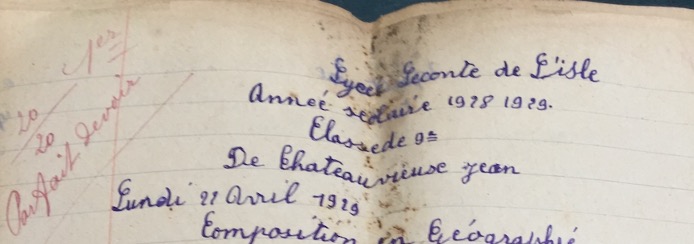 1er
20
20
Parfait devoir
Lycée Leconte de L'isle
Anneé scolaire 1928 1929.
Classe de 9e
De Chateauvieuse jean
Lundi 22 Avril 1929
Composition en Géographie